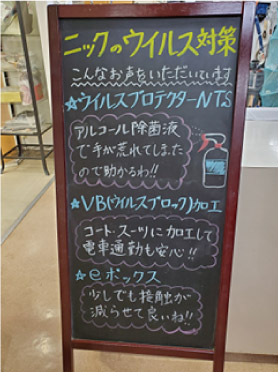 ニックのウイルス対策
こんなお声をいただいています
☆ウイルスプロテクターNTS
アルコール除菌液
で手が荒れてしまた
ので助かるわ!!
☆VB(ウイルスブロック)加工
コート・スーツに加工して
電車通勤も安心!!
☆eボックス
少しでも接触が
減らせて良いね!!